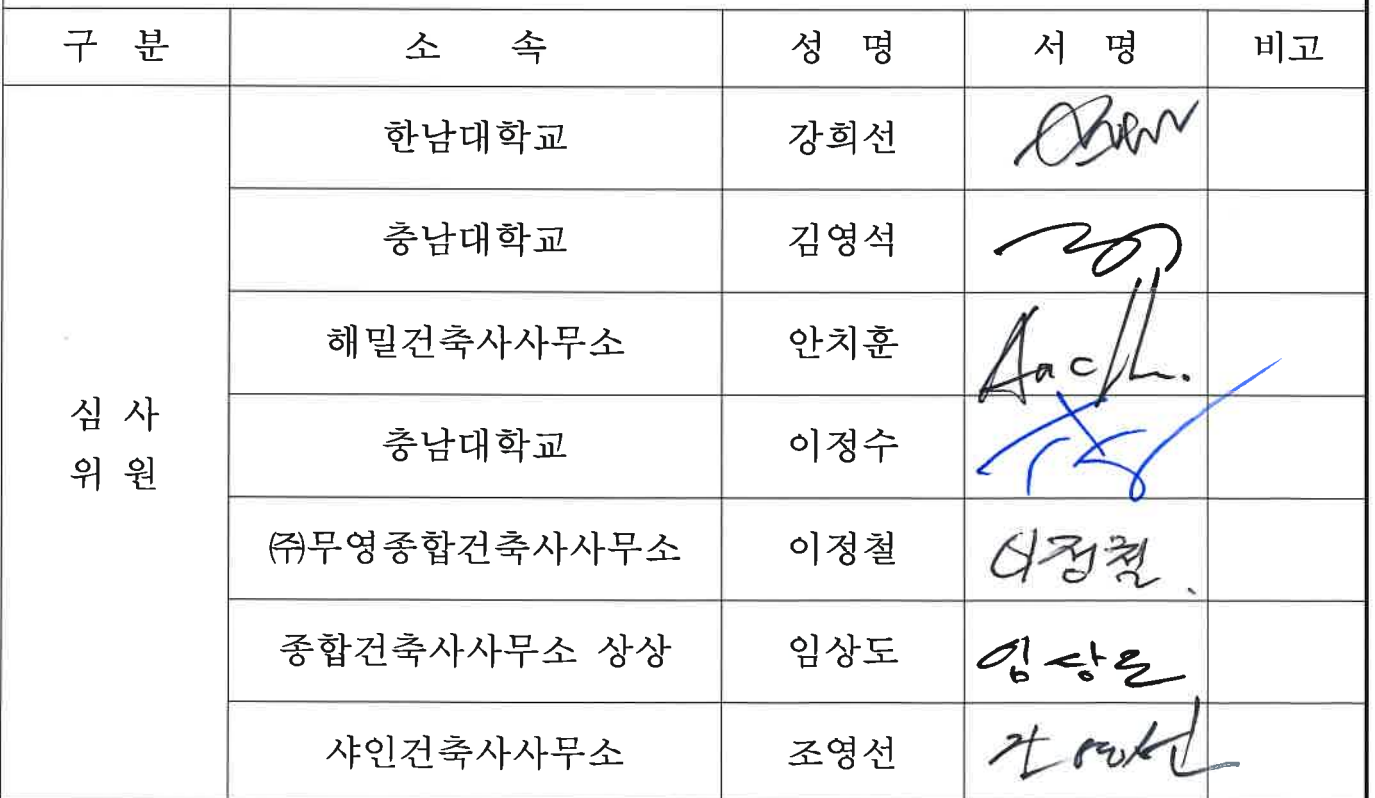 구 분 소 속 성 명 서 명 비고
심 사
위 원
한남대학교 강희선
충남대학교 김영석
해밀건축사사무소 안치훈
충남대학교 이정수
㈜무영종합건축사사무소 이정철 이정철.
종합건축사사무소 상상 임상도 임상도
샤인건축사사무소 조영선